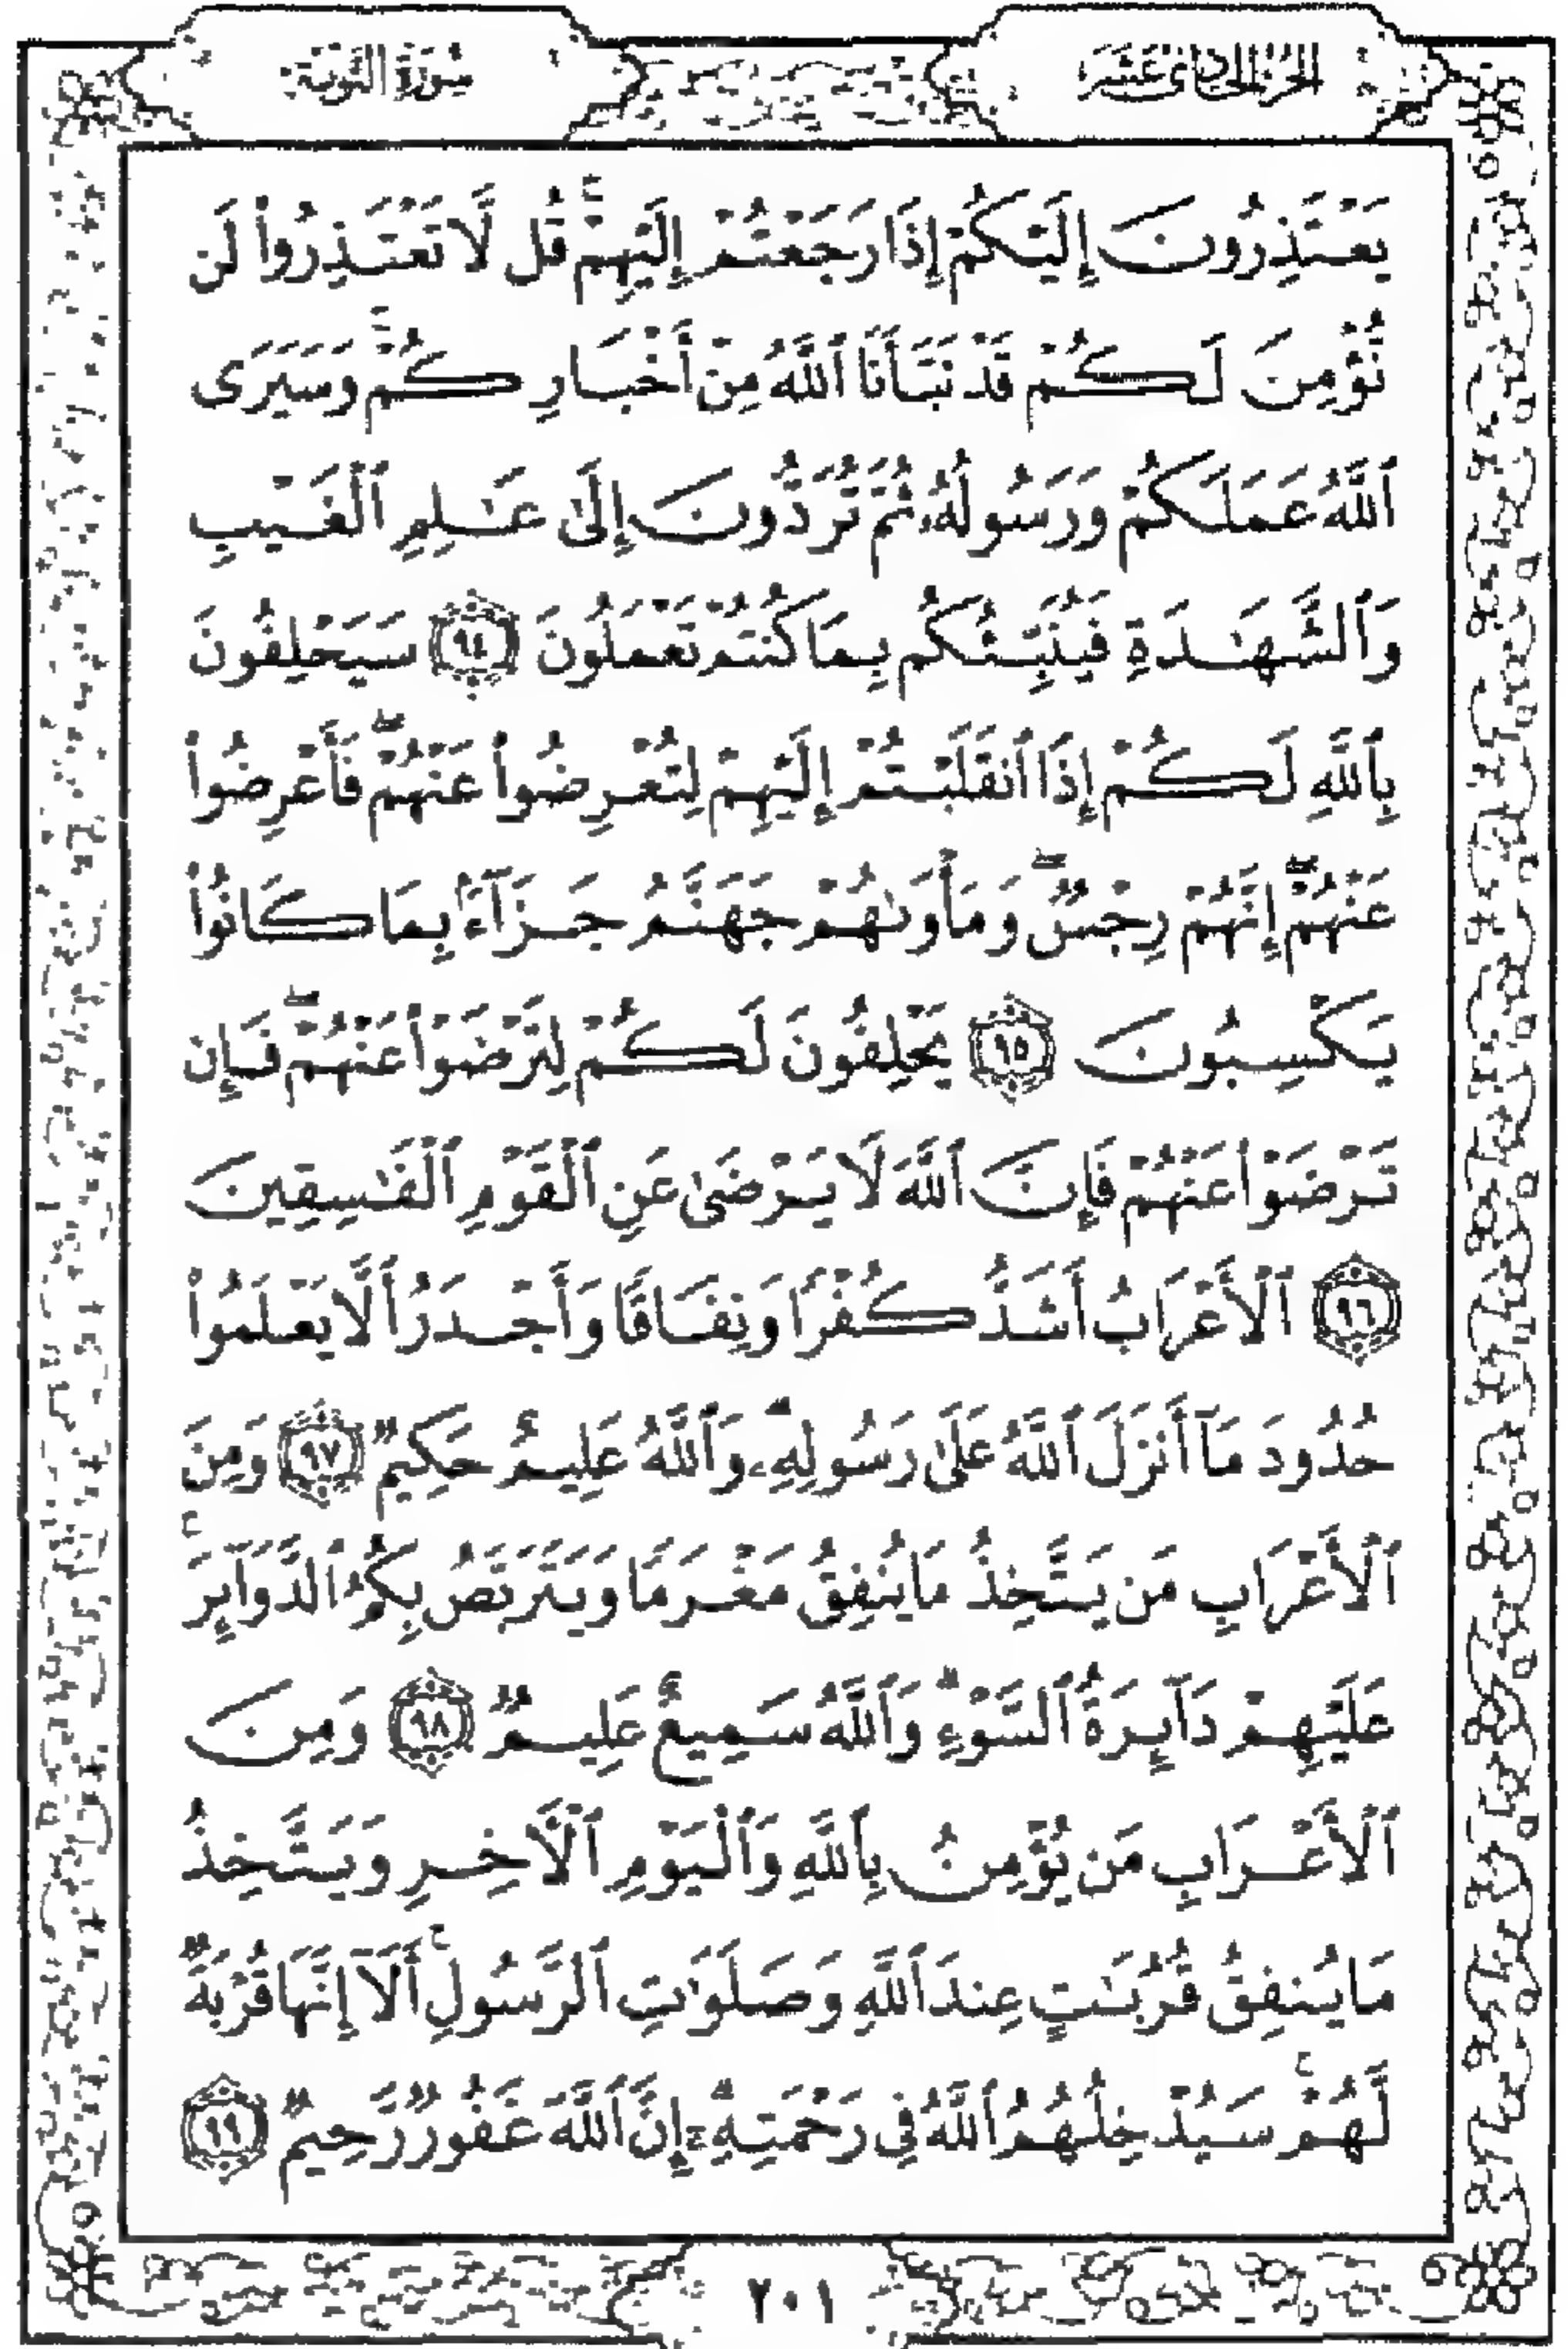 الجزء الحادي عشر
سورة التوبة
يَعْتَذِرُونَ إِلَيْكُمْ إِذَا رَجَعْتُمْ إِلَيْهِمْ ۚ قُل لَّا تَعْتَذِرُوا۟ لَن
نُّؤْمِنَ لَكُمْ قَدْ نَبَّأَنَا ٱللَّهُ مِنْ أَخْبَارِكُمْ ۚ وَسَيَرَى
ٱللَّهُ عَمَلَكُمْ وَرَسُولُهُۥ ثُمَّ تُرَدُّونَ إِلَىٰ عَـٰلِمِ ٱلْغَيْبِ
وَٱلشَّهَـٰدَةِ فَيُنَبِّئُكُم بِمَا كُنتُمْ تَعْمَلُونَ ٩٤ سَيَحْلِفُونَ
بِٱللَّهِ لَكُمْ إِذَا ٱنقَلَبْتُمْ إِلَيْهِمْ لِتُعْرِضُوا۟ عَنْهُمْ ۖ فَأَعْرِضُوا۟
عَنْهُمْ ۖ إِنَّهُمْ رِجْسٌ ۖ وَمَأْوَىٰهُمْ جَهَنَّمُ جَزَآءًۢ بِمَا كَانُوا۟
يَكْسِبُونَ ٩٥ يَحْلِفُونَ لَكُمْ لِتَرْضَوْا۟ عَنْهُمْ ۖ فَإِن
تَرْضَوْا۟ عَنْهُمْ فَإِنَّ ٱللَّهَ لَا يَرْضَىٰ عَنِ ٱلْقَوْمِ ٱلْفَـٰسِقِينَ
٩٦ ٱلْأَعْرَابُ أَشَدُّ كُفْرًا وَنِفَاقًا وَأَجْدَرُ أَلَّا يَعْلَمُوا۟
حُدُودَ مَآ أَنزَلَ ٱللَّهُ عَلَىٰ رَسُولِهِۦ ۗ وَٱللَّهُ عَلِيمٌ حَكِيمٌ ٩٧ وَمِنَ
ٱلْأَعْرَابِ مَن يَتَّخِذُ مَا يُنفِقُ مَغْرَمًا وَيَتَرَبَّصُ بِكُمُ ٱلدَّوَآئِرَ ۚ
عَلَيْهِمْ دَآئِرَةُ ٱلسَّوْءِ ۗ وَٱللَّهُ سَمِيعٌ عَلِيمٌ ٩٨ وَمِنَ
ٱلْأَعْرَابِ مَن يُؤْمِنُ بِٱللَّهِ وَٱلْيَوْمِ ٱلْـَٔاخِرِ وَيَتَّخِذُ
مَا يُنفِقُ قُرُبَـٰتٍ عِندَ ٱللَّهِ وَصَلَوَٰتِ ٱلرَّسُولِ ۚ أَلَآ إِنَّهَا قُرْبَةٌ
لَّهُمْ ۚ سَيُدْخِلُهُمُ ٱللَّهُ فِى رَحْمَتِهِۦٓ ۗ إِنَّ ٱللَّهَ غَفُورٌ رَّحِيمٌ ٩٩
٢٠١